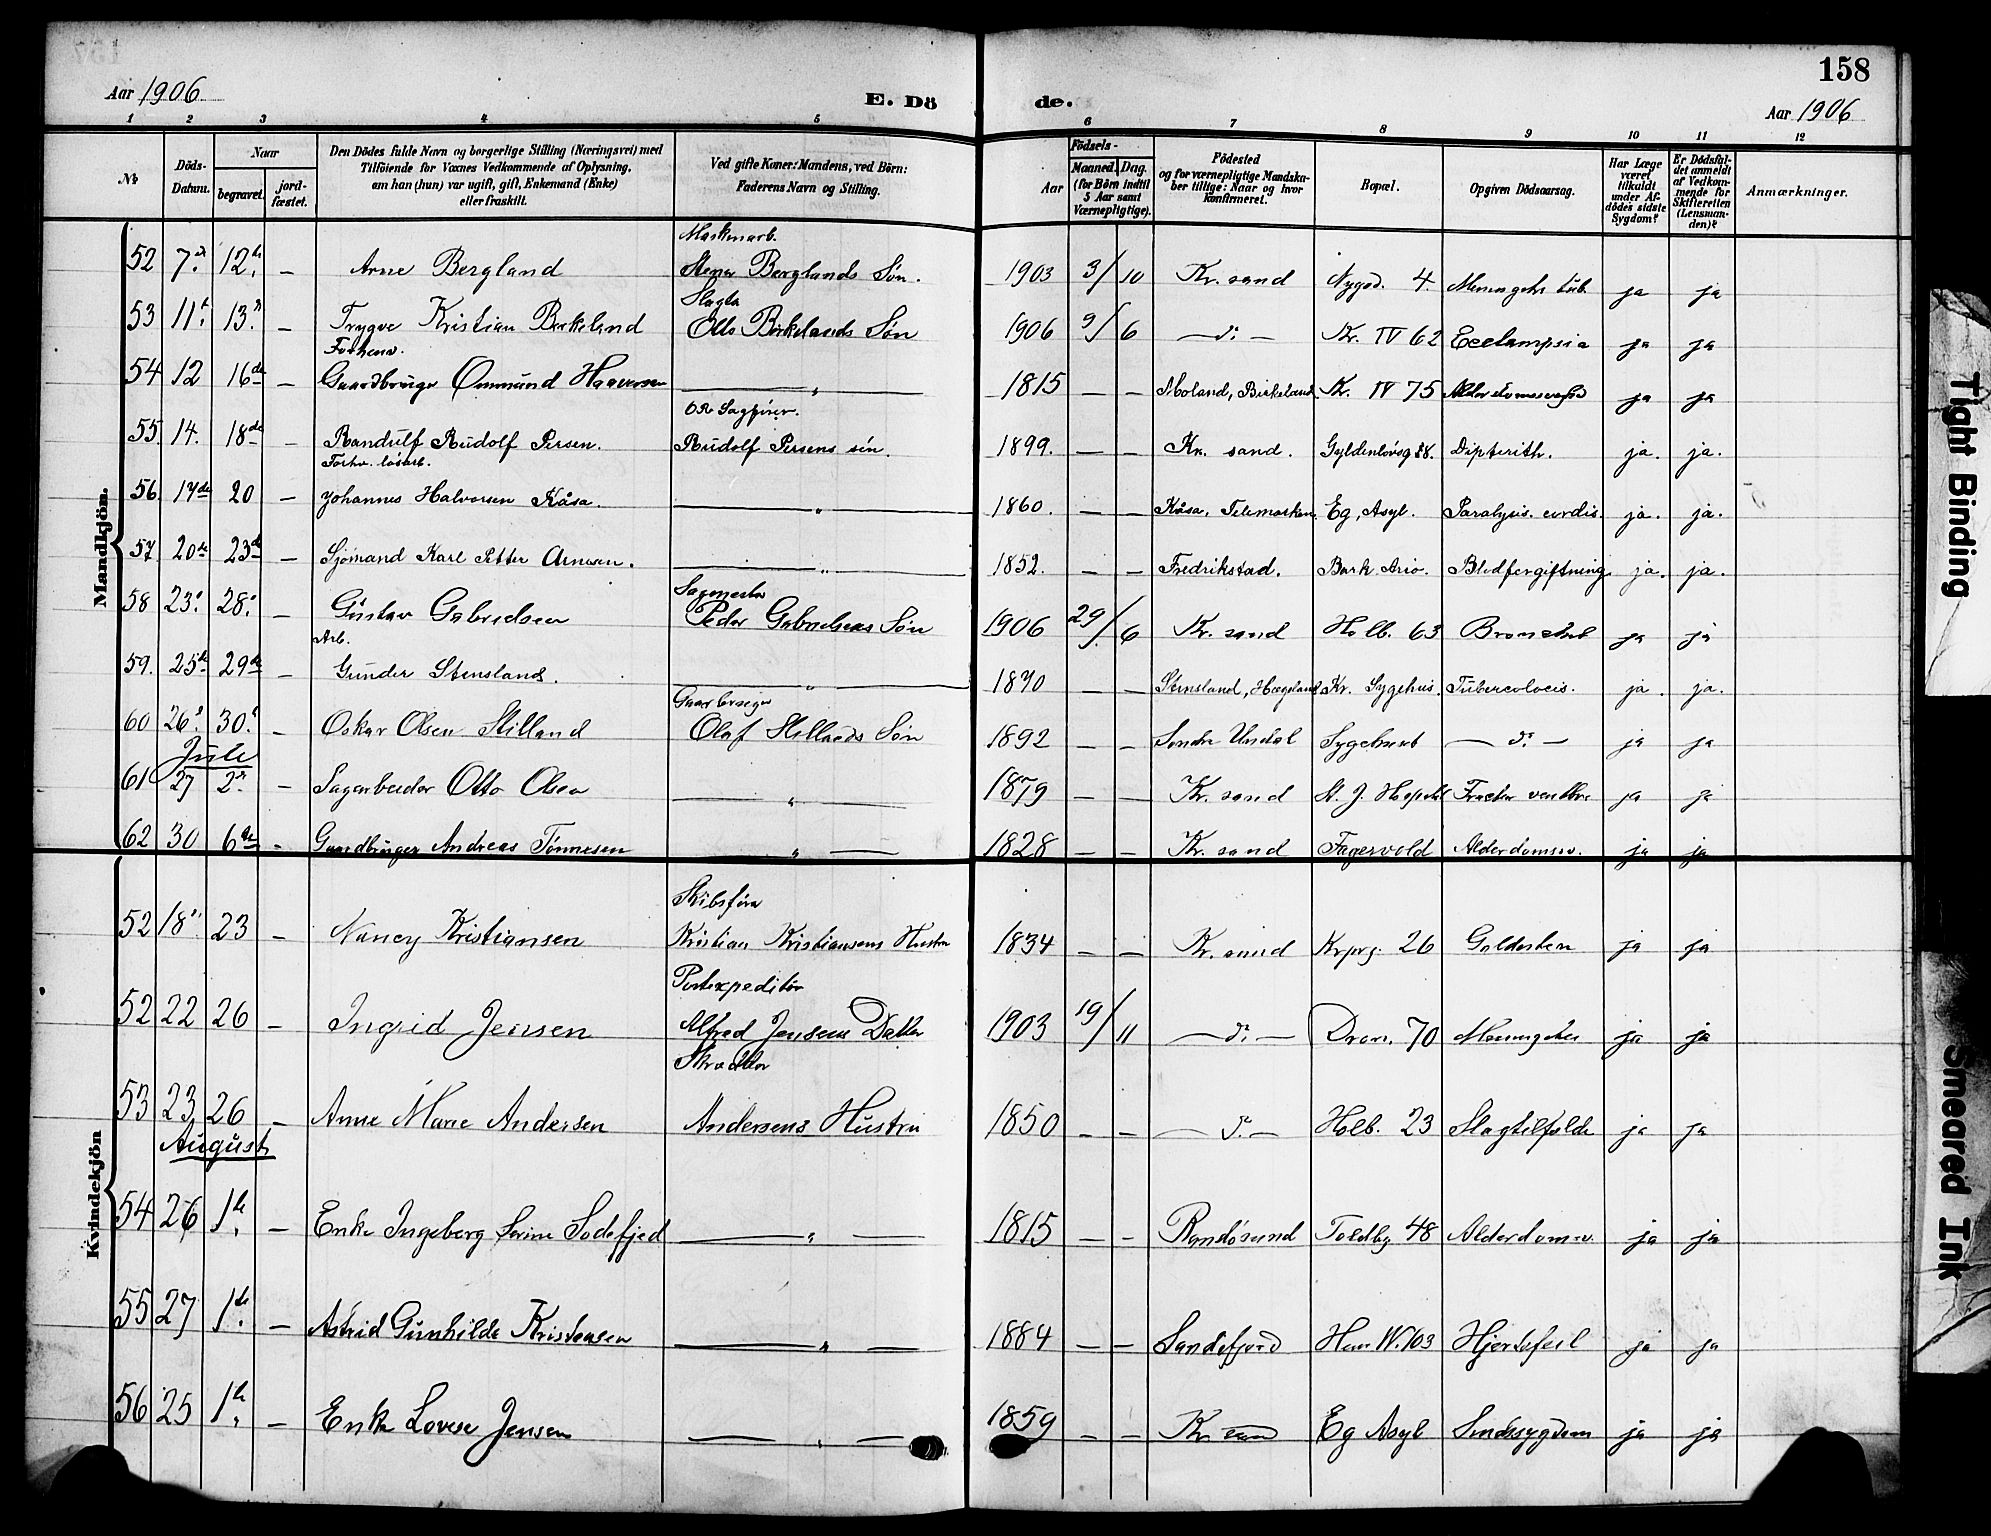 157
158
Aar 1906
E. Dö
de.
Aar 1906
1 2 3 4 5 6 7 8 9 10 11 12
№
Döds-Datum.
Naar
begravet.
jord-fæstet.
Den Dödes fulde Navn og borgerlige Stilling (Næringsvei) med
Tilföiende for Voxnes Vedkommende af Oplysning,
om han (hun) var ugift, gift, Enkemand (Enke)
eller fraskilt.
Ved gifte Koner: Mandens, ved Börn:
Faderens Navn og Stilling.
Födsels-
Aar
Maaned. Dag.
(for Börn indtil
5 Aar samt
Værnepligtige).
Födested
og for værnepligtige Mandska-
ber tillige: Naar og hvor
konfirmeret.
Bopæl.
Opgiven Dödsaarsag.
Har Læge
været
tilkaldt
under Af-
dödes sidste
Sygdom?
Er Dödsfal-
det anmeldt
af Vedkom-
mende for
Skifteretten
(Lensman-
den)?
Anmærkninger.
Mandkjön.
Maskinarb.
52 7de 12te — Arne Bergland Berglands Søn. 1903 3/10 Kr. sand Nygd. 4. tub. ja ja
53 11te 13de — Trygve Kristian Birkeland Otto Birkelands Søn 1906 9/6 — do — Kr. IV 62 Eclampsia ja ja
Forhenv.
54 12 16de — Gaardbruger Ommund Haaversen — „ — 1815 — — Moland, Birkeland Kr. IV 75 ja ja
OR Sagfører.
55. 14. 18de — Randulf Rudolf Persen. Rudolf Persens søn. 1899. — — Kr. sand. Gyldenløvsg 28. Dipterith. ja. ja.
Forhv. løsarb.
56. 17de 20 — Johannes Halvorsen Kåsa. — „ — 1860. — — Kåsa, Telemarken. Eg, Asyl. Paralysis. cordis. ja. ja.
57. 20de 23de — Sjømand Karl Petter Arnesen. — „ — 1852. — — Fredrikstad. Bark Ario. Blodforgiftning ja. ja.
58 23de 28de — Gustav Gabrielsen Peder Gabrielsens Søn 1906 29/6 Kr. sand Holb. 63 ja ja
Arb.
59. 25de 29de — Gunder Stensland. — „ — 1870 — — Stensland, Hægeland Kr. Sygehus. Tuberculocis. ja. ja.
60 26de 30te — Oskar Olsen Stilland Olaf Stillands Søn 1892 — — Søndre Undal Sygehuset — do — ja ja
Juli
61 27 2den — Sagarbeider Otto Olsen — „ — 1879 — — Kr. sand St. J. Hospital ja ja
62 30 6te — Gaardbruger Andreas Tønnesen — „ — 1828 — — Kr. sand Fagervold Alderdomssv. ja ja
Kvindekjön
Skibsfører
52 18de 23 — Nancy Kristiansen Kristian Kristiansens Hustru 1834 — — Kr. sand Krprg. 26 Galdesten ja ja
Postexpeditør
52 22 26 — Ingrid Jensen Alfred Jensens Datter 1903 19/11 — do — Dron. 70 ja ja
Skrædder
53 23 26 — Anne Marie Andersen Andersens Hustru 1850 — — — do — Holb. 23 Slagtilfælde ja ja
August
54 26 1te — Enke Ingeborg Serine Sodefjed — „ — 1815 — — Randøsund Toldbg 48 Alderdomssv. ja ja
55 27 1ste — Astrid Gunhilde Kristensen — „ — 1884 — — Sandefjord Hen W. 103 Hjertefeil ja ja
56 25 1te — Enke Lovise Jensen — „ — 1859 — — Kr. sand Eg Asyl Sindssygdom ja ja
Tight Binding
Smeared Ink